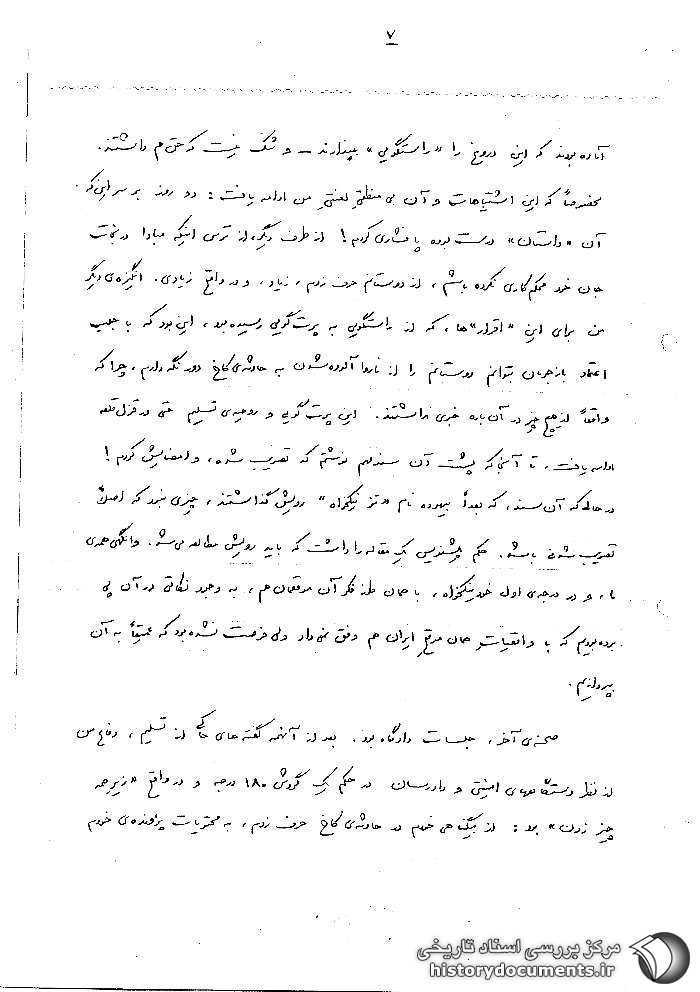 ۷
آماده بودند که این دروغ را «راستگویی» بپندارند – و شک نیست که حق هم داشتند.
مخصوصاً که این اشتباهات و آن بی منطقیِ لعنتیِ من ادامه یافت: دو روز بر سر این که
آن «داستان» درست بوده پافشاری کردم! از طرف دیگر، از ترس اینکه مبادا در نجات
جان خود محکم کاری نکرده باشم، از دوستانم حرف زدم، زیاد، و در واقع زیادی. انگیزه‌ی دیگر
من برای این «اقرار»ها، که از راستگویی به پرت گویی رسیده بود، این بود که با جلب
اعتماد بازجویان بتوانم دوستانم را از ناروا آلوده شدن به حادثه‌ی کاخ دور نگه دارم، چرا که
واقعاً از هیچ چیز در آن باره خبری نداشتند. این پرت گویی و روحیه‌ی تسلیم حتی در قزل قلعه
ادامه یافت، تا آنجا که پشت آن سند هم نوشتم که تصویب شده، و امضایش کردم!
در حالی که آن سند، که بعداً بیهوده نام «تز نیکخواه» رویش گذاشتند، چیزی نبود که اصلاً
تصویب شدنی باشد. حکم پیشنویس یک مقاله را داشت که باید رویش مطالعه می‌شد. وانگهی همه‌ی
ما، و در درجه‌ی اول خود نیکخواه، با همان طرز فکر آن موقعمان هم، به وجود نکاتی در آن پی
برده بودیم که با واقعیات همان موقع ایران هم وفق نمی‌داد ولی فرصت نشده بود که عمیقاً به آن
بپردازیم.
صحنه‌ی آخر، جلسات دادگاه بود. بعد از آنهمه گفته های حاکی از تسلیم، دفاع من
از نظر دستگاههای امنیتی و دادرسان در حکم یک گردش ۱۸۰ درجه و در واقع «زیر همه
چیز زدن» بود: از بیگناهی خودم در حادثه‌ی کاخ حرف زدم، به محتویات پرونده‌ی خودم
مرکز بررسی اسناد تاریخی
historydocuments.ir